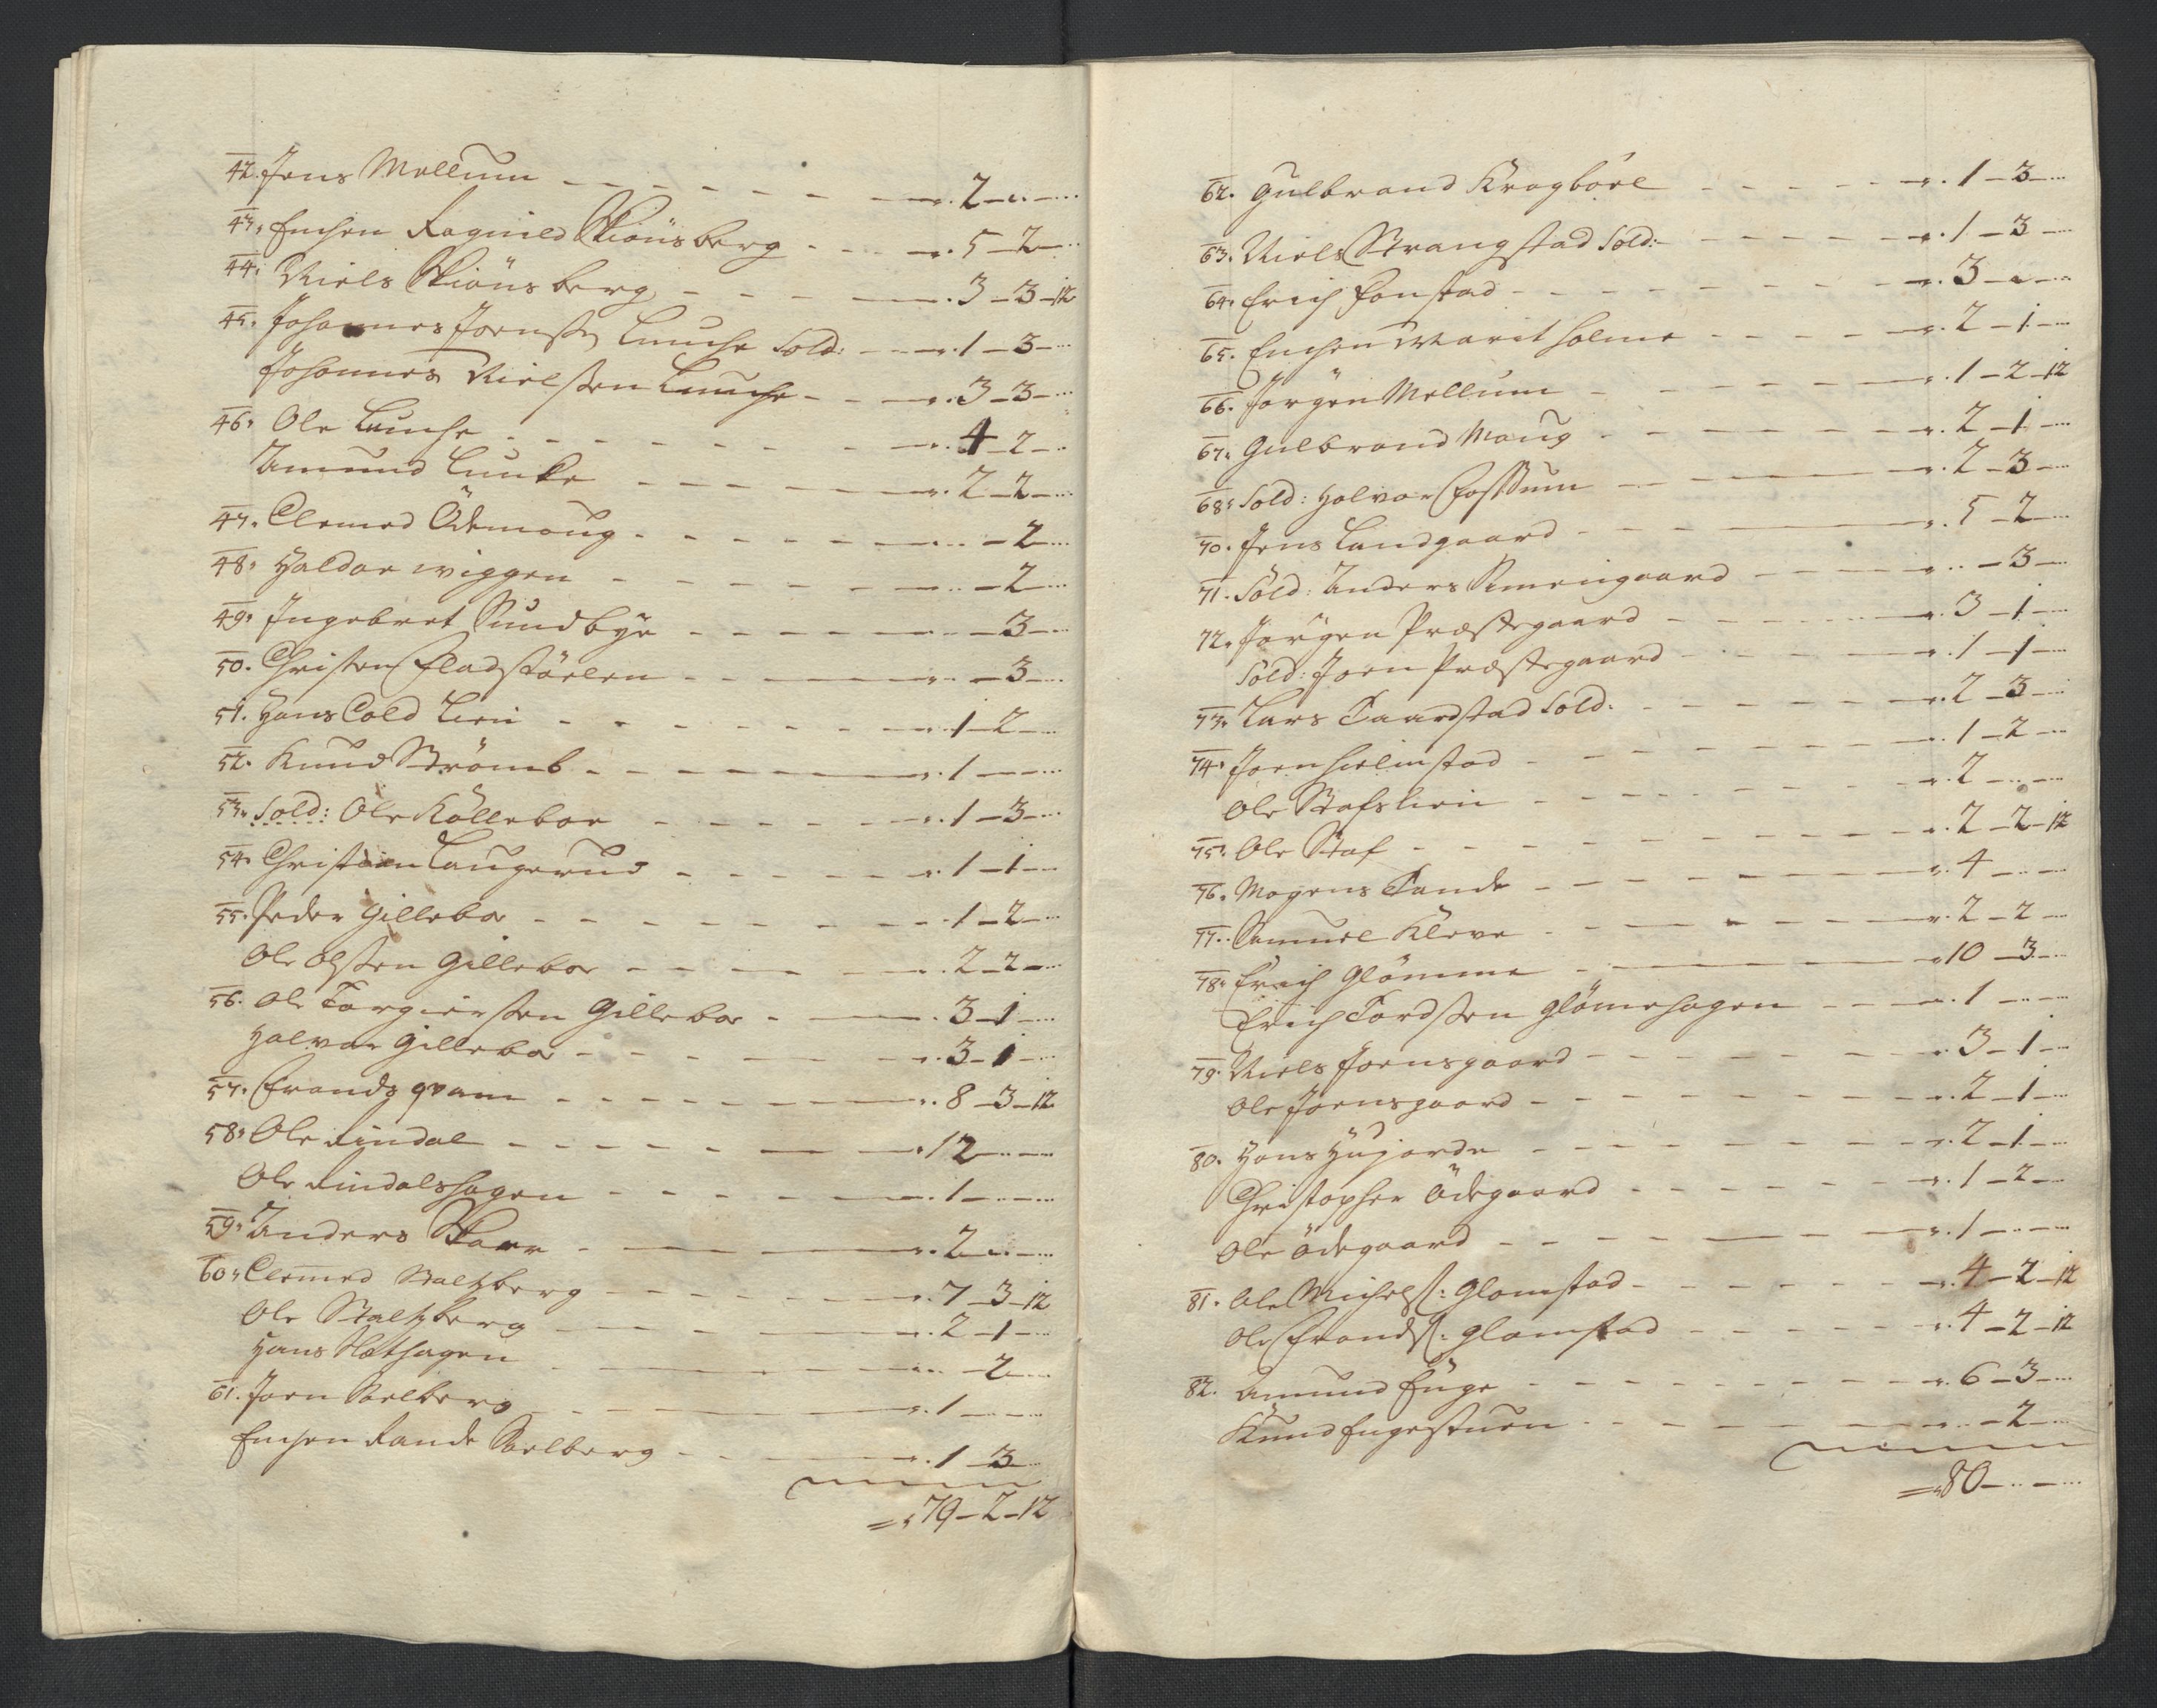 42. Jens Mellum - - - - - - 2 - " - ...
43. Enchen Ragnild Skiønsberg - - - 5 - 2 - ...
44. Niels Skiønsberg - - - - 3 - 3 - 12
45. Johannes Joenss: Lunche Sold: - - - 1 - 3 - ...
Johannes Nielssen Lunche - - - 3 - 3 - ...
46. Ole Lunche - - - - - - 4 - 2 - ...
Amund Lunke - - - - - 2 - 2 - ...
47. Clemed Ødemoug - - - - - - 2 - ...
48. Haldor wiggen - - - - - - 2 - ...
49. Ingebret Sundbye - - - - - 3 - ...
50. Christen Fladstøelen - - - - 3 - ...
51. Hans Cold Lien - - - - - 1 - 2 - ...
52. Knud Strømb - - - - - 1 - - ...
53. Sold: Ole Køllebær - - - - - 1 - 3 - ...
54. Christian Laugerud - - - - - 1 - 1 - ...
55. Peder Gillebo - - - - - - 1 - 2 - ...
Ole Olssen Gillebo - - - - - 2 - 2 - ...
56. Ole Torgierssen Gillebo - - - 3 - 1 - ...
Halvor Gillebo - - - - - 3 - 1 - ...
57. Frands qvam - - - - - - 8 - 3 - 12
58. Ole Rindal - - - - - - 12 - ... - ...
Ole Rindalshagen - - - - - 1 - ... - ...
59. Anders Skarr - - - - - 2 - " - ...
60. Clemed Staltzberg - - - - - 7 - 3 - 12
Ole Staltzberg - - - - - 2 - 1 - ...
Hans Slethagen - - - - - 2 - ...
61. Joen Saelberg - - - - - 1 - ... - ...
Enchen Rande Saelberg - - - 1 - 3 - ...
= 179 - 2 - 12
62. Gulbrand Kragbøel - - - - - 1 - 3 - ...
63. Niels Strangstad Sold: - - - - - 1 - 3 - ...
64. Erich Fonstad - - - - - - 3 - " - ...
65. Enchen Marit Holme - - - - - 2 - 1 - ...
66. Jørgen Mellum - - - - - 1 - 2 - 12
67. Gulbrand Moug - - - - - - 2 - 1 - ...
68. Sold: Halvor Fossum - - - - - 2 - 3 - ...
70. Jens Landgaard - - - - - 5 - 2 - ...
71. Sold: Anders Simengaard - - - - 3 - ...
72. Jørgen Præstegaard - - - - - 3 - 1 - ...
Sold: Joen Præstegaard - - - - - 1 - 1 - ...
73. Lars Taardstad Sold: - - - - - 2 - 3 - ...
74. Joen Hielmstad - - - - - 1 - 2 - ...
Ole Stafslien - - - - - 2 - ... - ...
75. Ole Staf - - - - - - 2 - 2 - 12
76. Mogens Tande - - - - - 4 - ... - ...
77. Samuel Kleve - - - - - 2 - 2 - ...
78. Erich Glømme - - - - - 10 - 3 - ...
Erich Tordssen Glømehagen - - - 1 - ... - ...
79. Niels Joensgaard - - - - - 3 - 1 - ...
Ole Joensgaard - - - - - - 2 - 1 - ...
80. Hans Hugjorde - - - - - - 2 - 1 - ...
Christopher Ødegaard - - - - - 1 - 2 - ...
Ole Ødegaard - - - - - - 1 - ... - ...
81. Ole Michelss: Glomstad - - - - - 4 - 2 - 12
Ole Frandss: Glomstad - - - - - 4 - 2 - 12
82. Amund Enge - - - - - - 6 - 3 - ...
Knud Engestuen - - - - - 2 - ...
= 80 - ... - ...